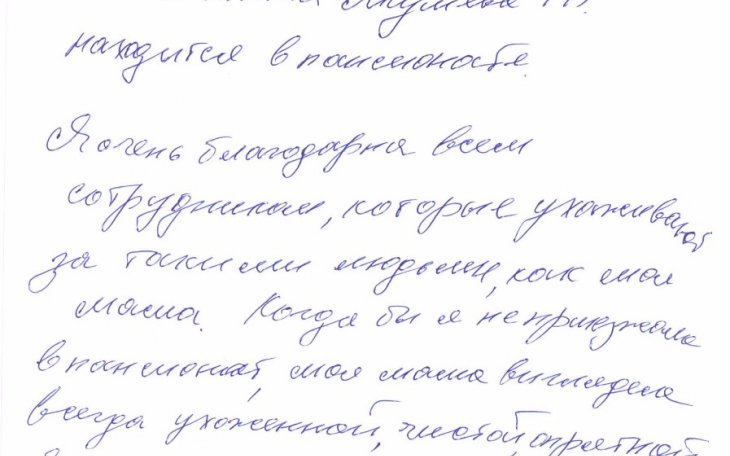 находится в пансионате.
Я очень благодарна всем
сотрудникам, которые ухаживают
за такими людьми, как моя
мама. Когда бы я не приезжала
в пансионат, моя мама выглядела
всегда ухоженной, чистой, опрятной